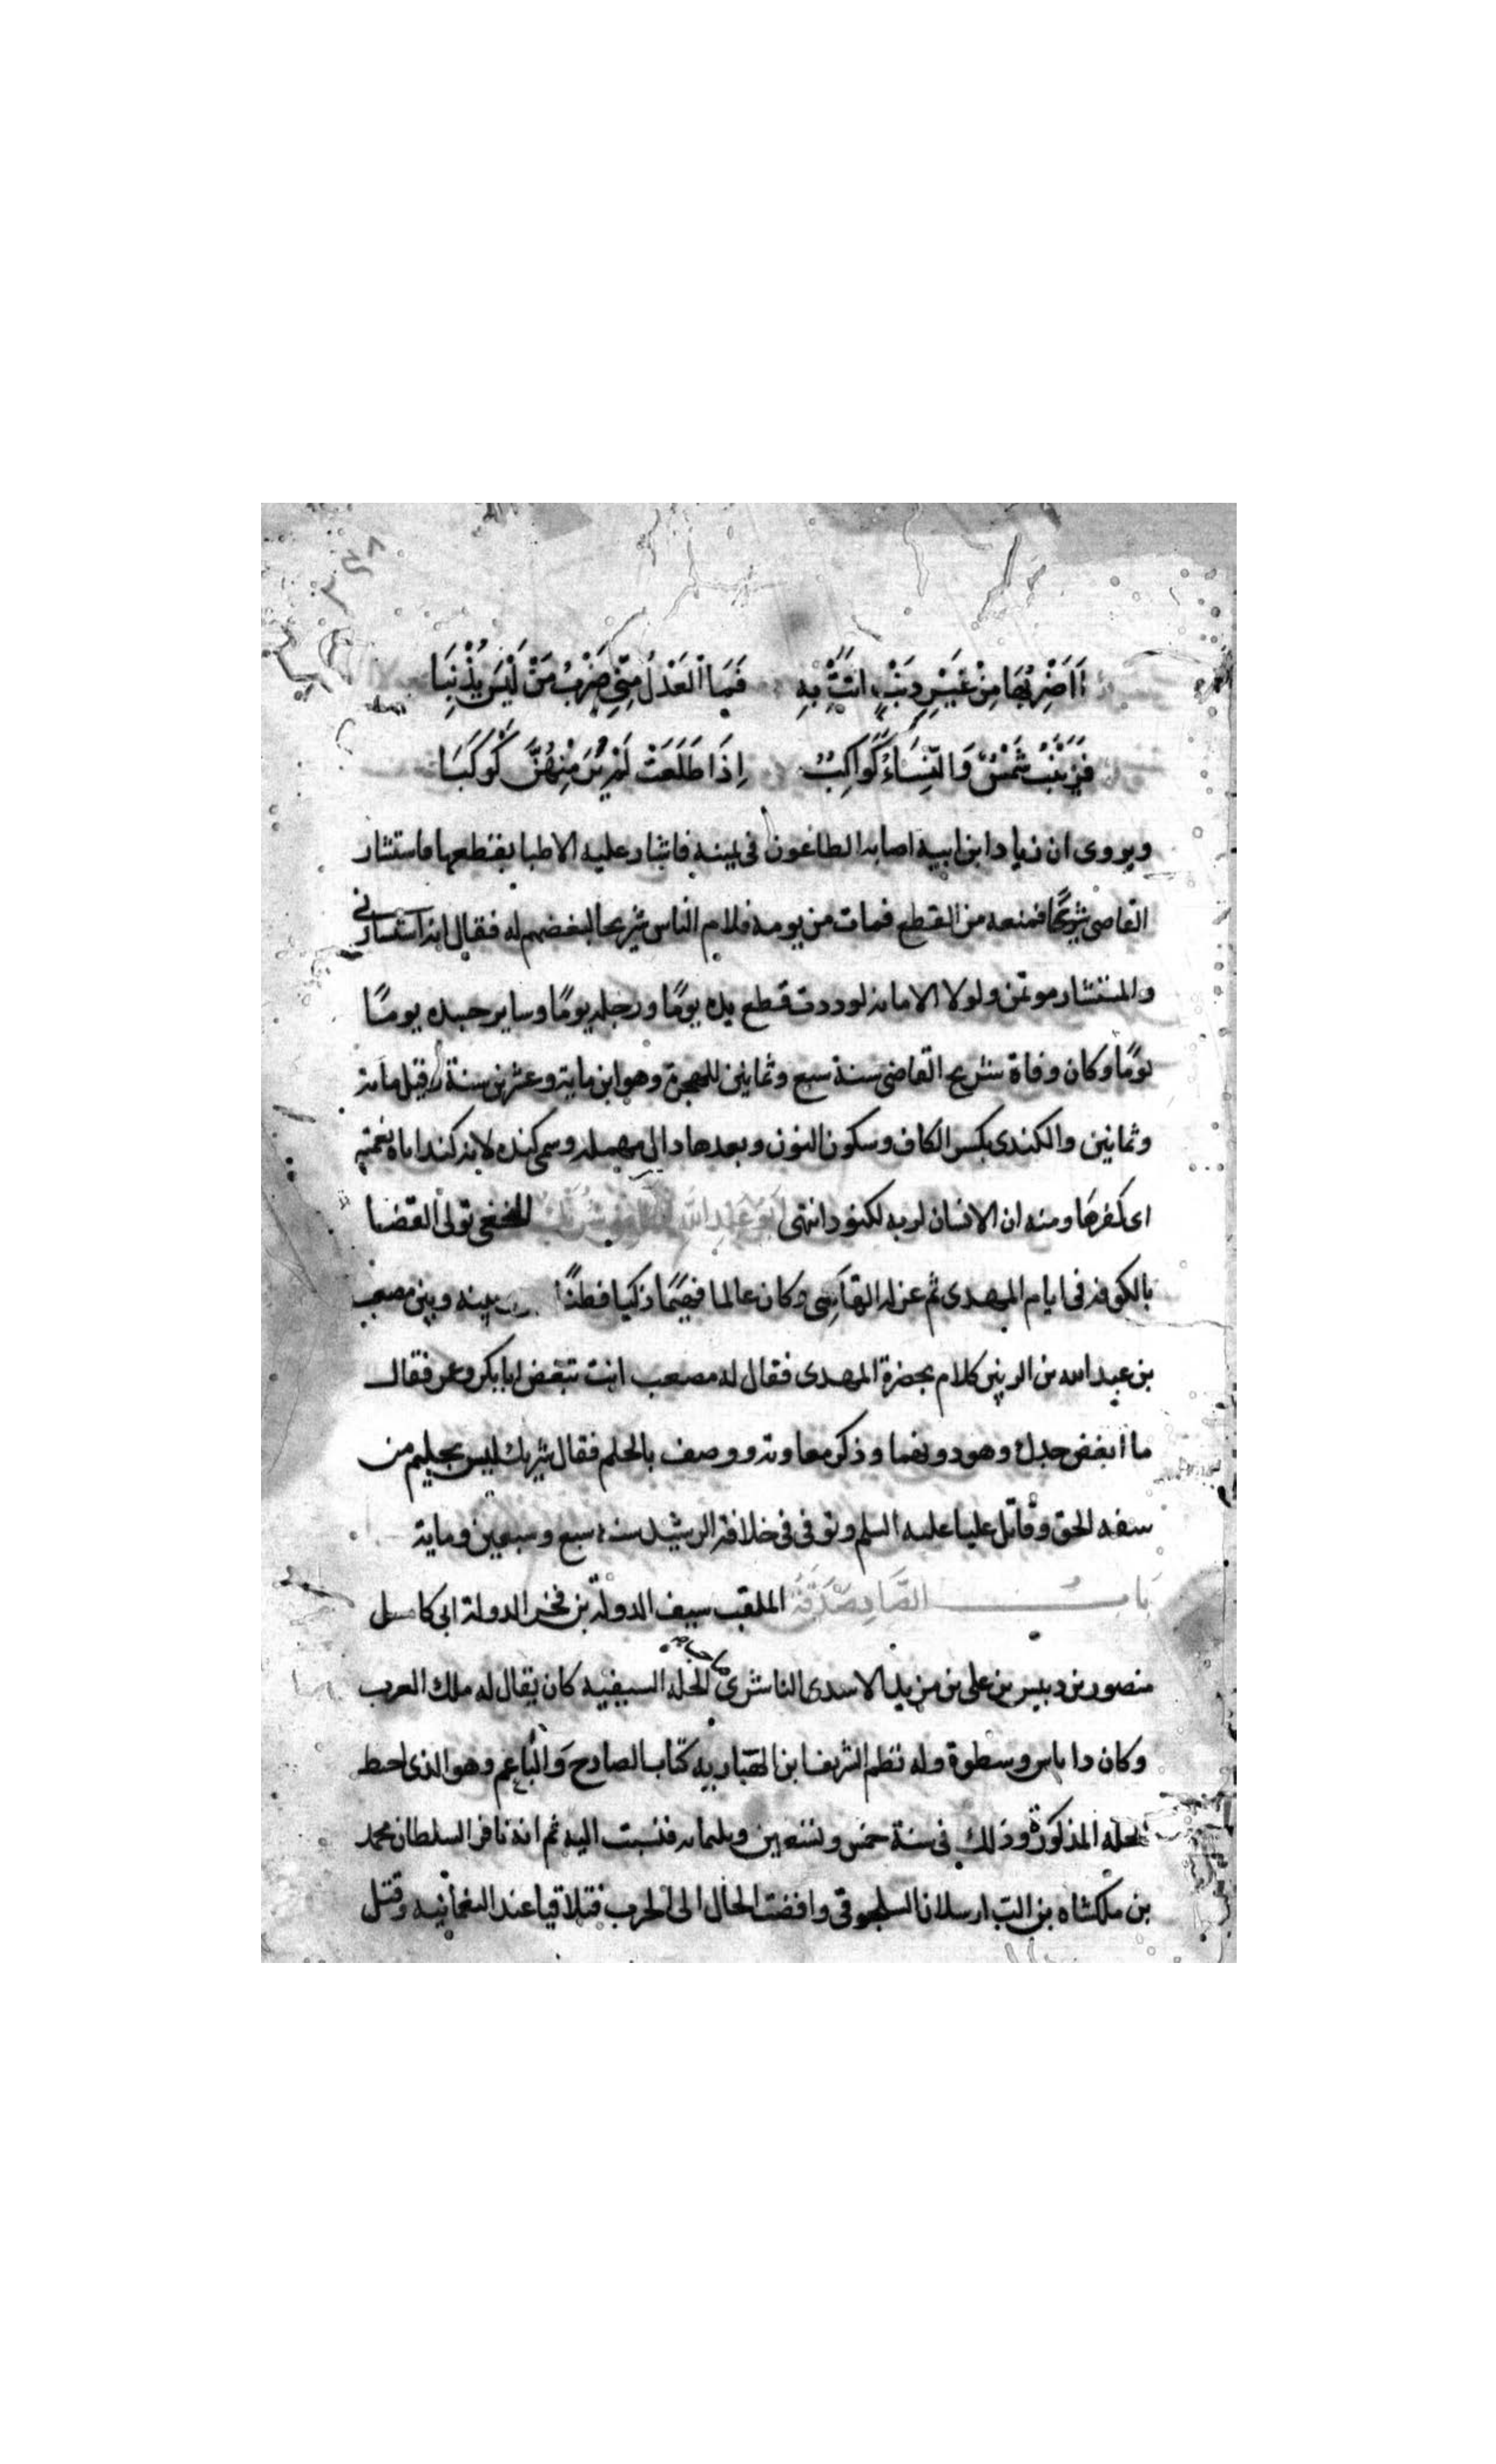 أَأَضْرِبُهَا مِنْ غَيْرِ ذَنْبٍ اتَتْ بِهِ فَمَا الْعَدْلُ مِنّي ضَرْبُ مَنْ لَيْسَ يُذْنِبَا
فَزَيْنَبُ شَمْسٌ وَالنِّسَاءُ كَوَاكِبُ اِذَا طَلَعَتْ لَمْ تُرَ مِنْهُنَّ كَوْكَبَا
ويروى ان زياد ابن ابيه اصابه الطاعون فى يمينه فاشار عليه الاطبا بقطعها فاستشار
القاضى شريحًا فمنعه من القطع فمات من يومه فلام الناس شريحا لبغضهم له فقال انه استشارنى
والمستشار موتمن ولولا الامانه لوددت قطع يده يومًا ورجله يومًا وساير جسده يومًا
يومًا وكان وفاة شريح القاضى سنة سبع وثمانين للهجرة وهو ابن ماية وعشرين سنة وقيل مانه
وثمانين والكندى بكسر الكاف وسكون النون وبعدها دال مهمله وسمى كنده لانه كند اباه نعمته
اى كفرها ومنه ان الانسان لربه لكنود انتهى ابو عبد الله شريك النخعى تولى القضا
بالكوفه فى ايام المهدى ثم عزله الهادى وكان عالما فهيمًا ذكيا فطنًا بينه وبين مصعب
بن عبد الله بن الزبير كلام بحضرة المهدى فقال له مصعب انت تبغض ابا بكر وعمر فقال
ما ابغض جدك وهو دونهما وذكر معاوية ووصف بالحلم فقال شريك ليس بحليم من
سفه الحق وقاتل عليا عليه السلم وتوفى فى خلافة الرشيد سنة سبع وسبعين وماية
بَابُ الصَّادِ صَدَقَة الملقب سيف الدولة بن فخر الدولة ابى كامل
منصور بن دبيس بن على بن مزيد الاسدى الناشرى صاحب الحله السيفيه كان يقال له ملك العرب
وكان ذا باس وسطوة وله نظم الشريف ابن الهبارية كتاب الصادح والباغم وهو الذى اختط
الحله المذكورة وذلك فى سنة خمس وتسعين واربعمايه فنسبت اليه ثم انه نافر السلطان محمد
بن ملكشاه بن الب ارسلان السلجوقى وافضت الحال الى الحرب فتلاقيا عند النعمانيه وقتل